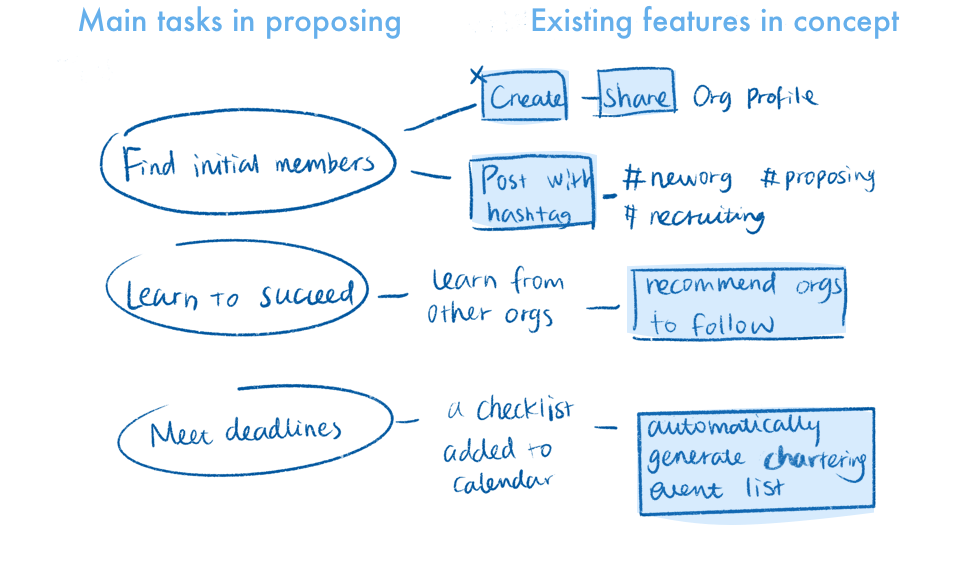 Main tasks in proposing
Existing features in concept
Find initial members
Create
Share
Org Profile
Post with
hashtag
#neworg #proposing
# recruiting
Learn to succeed
learn from
other orgs
recommend orgs
to follow
Meet deadlines
a checklist
added to
calendar
automatically
generate chartering
event list